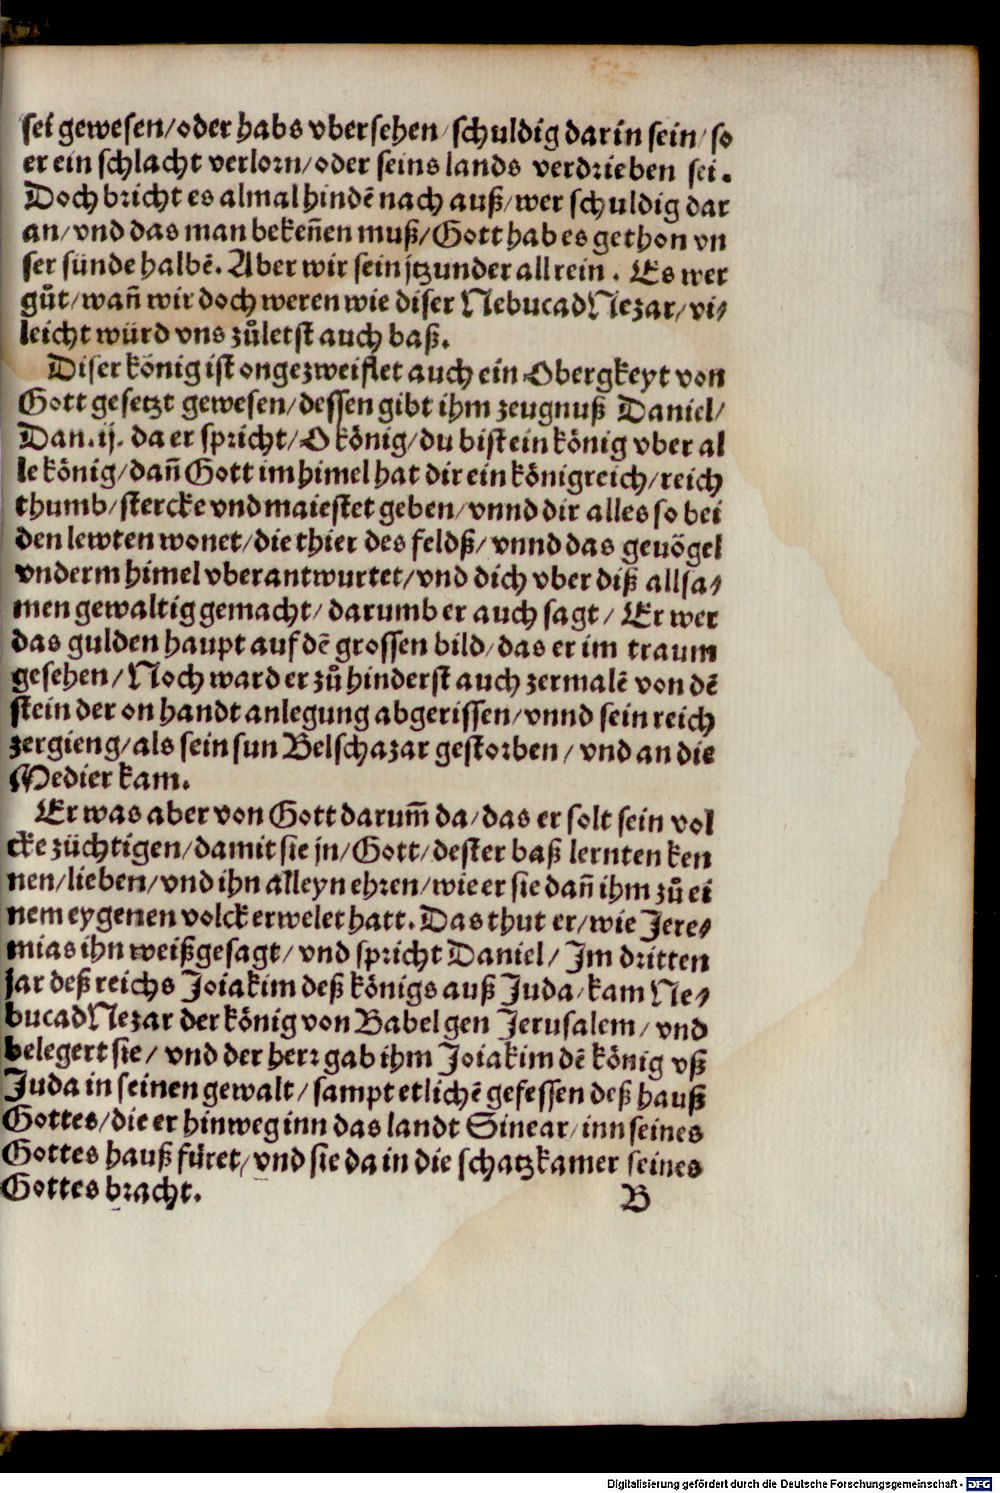 sei gewesen/oder habs vbersehen/schuldig darin sein/so
er ein schlacht verlorn/oder seins lands verdrieben sei.
Doch bricht es almal hindē nach auß/wer schuldig dar
an/vnd das man bekeñen muß/Gott hab es gethon vn
ser sünde halbē. Aber wir sein jtzunder all rein. Es wer
gůt/wañ wir doch weren wie diser NebucadNezar/vi⸗
leicht würd vns zůletst auch baß.
Diser könig ist ongezweiflet auch ein Obergkeyt von
Gott gesetzt gewesen/dessen gibt ihm zeugnuß Daniel/
Dan.ij. da er spricht/O könig/du bist ein könig vber al
le könig/dañ Gott im himel hat dir ein königreich/reich
thumb/stercke vnd maiestet geben/vnnd dir alles so bei
den lewten wonet/die thier des feldß/vnnd das geuögel
vnderm himel vberantwurtet/vnd dich vber diß allsa⸗
men gewaltig gemacht/darumb er auch sagt/Er wer
das gulden haupt auf dē grossen bild/das er im traum
gesehen/Noch ward er zů hinderst auch zermalē von dē
stein der on handt anlegung abgerissen/vnnd sein reich
zergieng/als sein sun Belschazar gestorben/vnd an die
Medier kam.
Er was aber von Gott darum̃ da/das er solt sein vol
cke züchtigen/damit sie jn/Gott/dester baß lernten ken
nen/lieben/vnd ihn alleyn ehren/wie er sie dañ ihm zů ei
nem eygenen volck erwelet hatt. Das thut er/wie Jere⸗
mias ihn weißgesagt/vnd spricht Daniel/Im dritten
jar deß reichs Joiakim deß königs auß Juda/kam Ne⸗
bucadNezar der könig von Babel gen Jerusalem/vnd
belegert sie/vnd der herr gab ihm Joiakim dē könig vß
Juda in seinen gewalt/sampt etlichē gefessen deß hauß
Gottes/die er hinweg inn das landt Sinear/inn seines
Gottes hauß füret/vnd sie da in die schatzkamer seines
Gottes bracht.
B
Digitalisierung gefördert durch die Deutsche Forschungsgemeinschaft - DFG